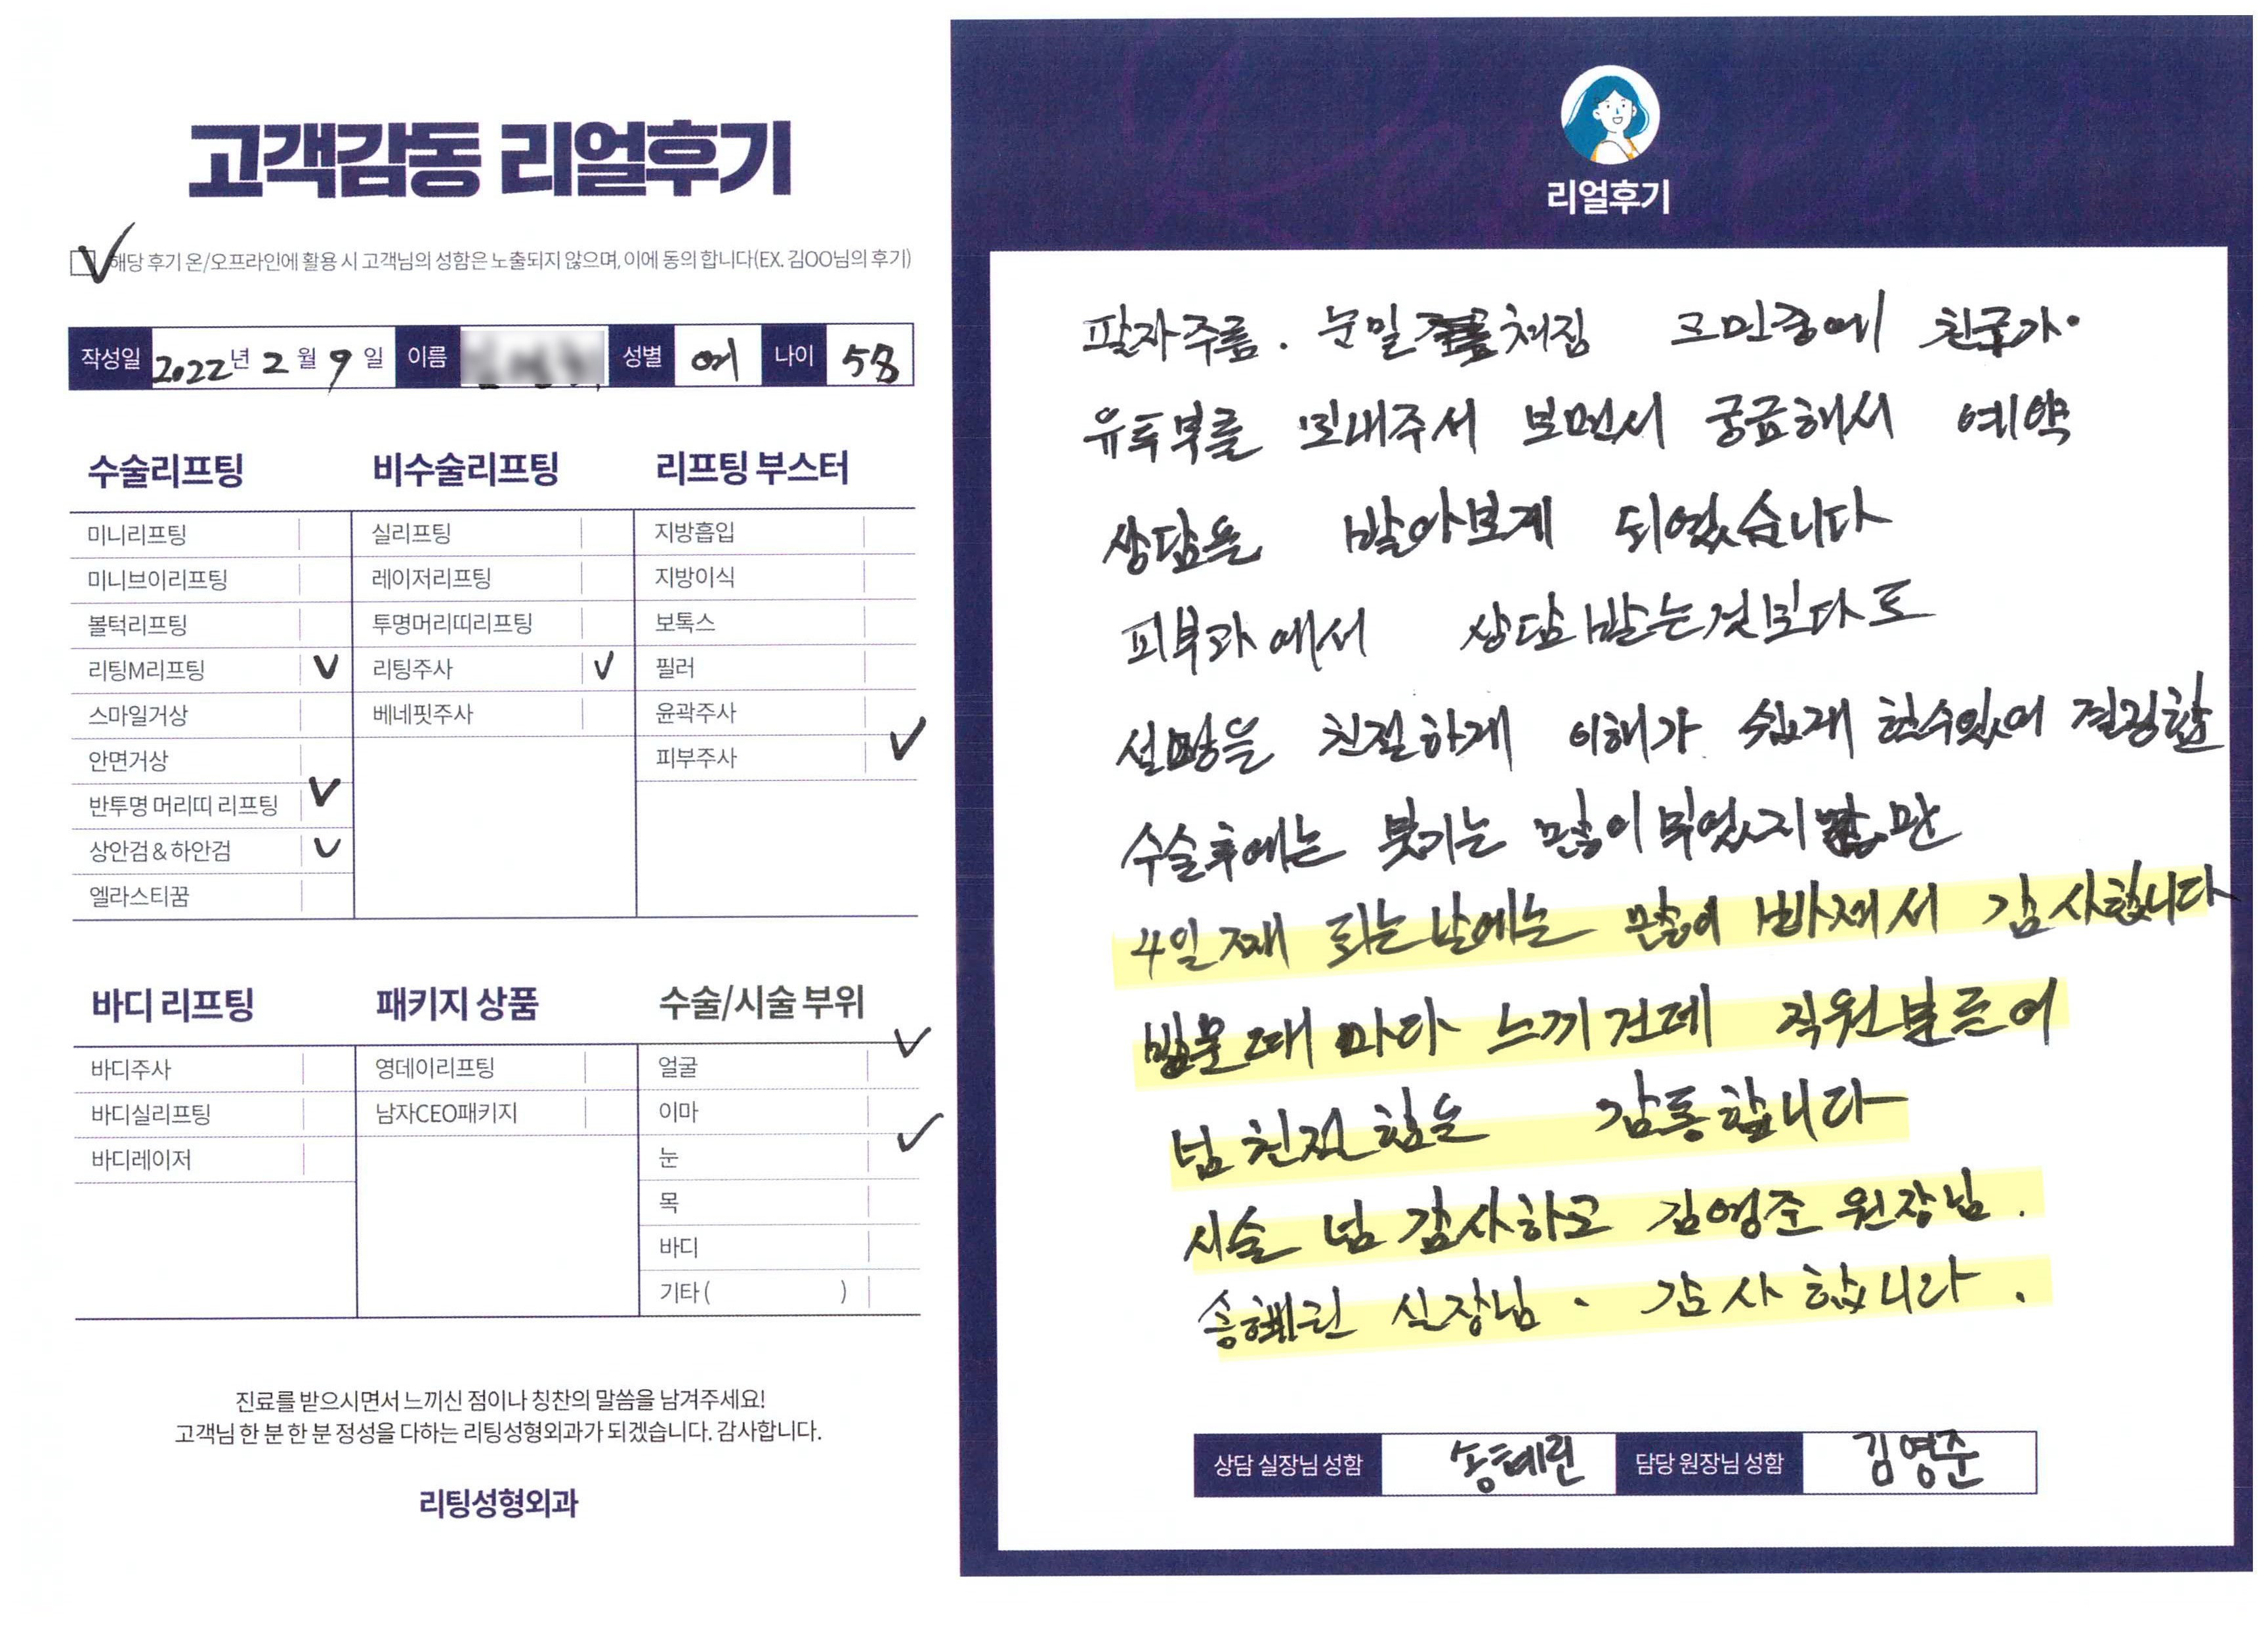 고객감동 리얼후기
해당 후기 온/오프라인에 활용 시 고객님의 성함은 노출되지 않으며, 이에 동의 합니다(EX. 김OO님의 후기)
작성일 2022년 2월 9일 이름 성별 여 나이 58
수술리프팅 비수술리프팅 리프팅 부스터
미니리프팅 실리프팅 지방흡입
미니브이리프팅 레이저리프팅 지방이식
볼턱리프팅 투명머리띠리프팅 보톡스
리팅M리프팅 V 리팅주사 V 필러
스마일거상 베네핏주사 윤곽주사
안면거상 피부주사 V
반투명 머리띠 리프팅 V
상안검&하안검 V
엘라스티꿈
바디 리프팅 패키지 상품 수술/시술 부위
바디주사 영데이리프팅 얼굴 V
바디실리프팅 남자CEO패키지 이마
바디레이저 눈 V
목
바디
기타 ( )
진료를 받으시면서 느끼신 점이나 칭찬의 말씀을 남겨주세요!
고객님 한 분 한 분 정성을 다하는 리팅성형외과가 되겠습니다. 감사합니다.
리팅성형외과
리얼후기
팔자주름. 눈밑 처짐 고민중에 친구가
유투브를 보내주서 보면서 궁금해서 예약
상담을 받아보게 되었습니다
피부과에서 상담받는것보다도
설명을 친절하게 이해가 쉽게 할수있어 결정함
수술후에는 붓기는 많이 부었지만
4일째 되는날에는 많이 빠져서 감사합니다
방문때마다 느끼건데 직원분들이
넘 친절함을 감동합니다
시술 넘 감사하고 김영준 원장님.
송혜린 실장님. 감사합니다.
상담 실장님 성함 송혜린 담당 원장님 성함 김영준